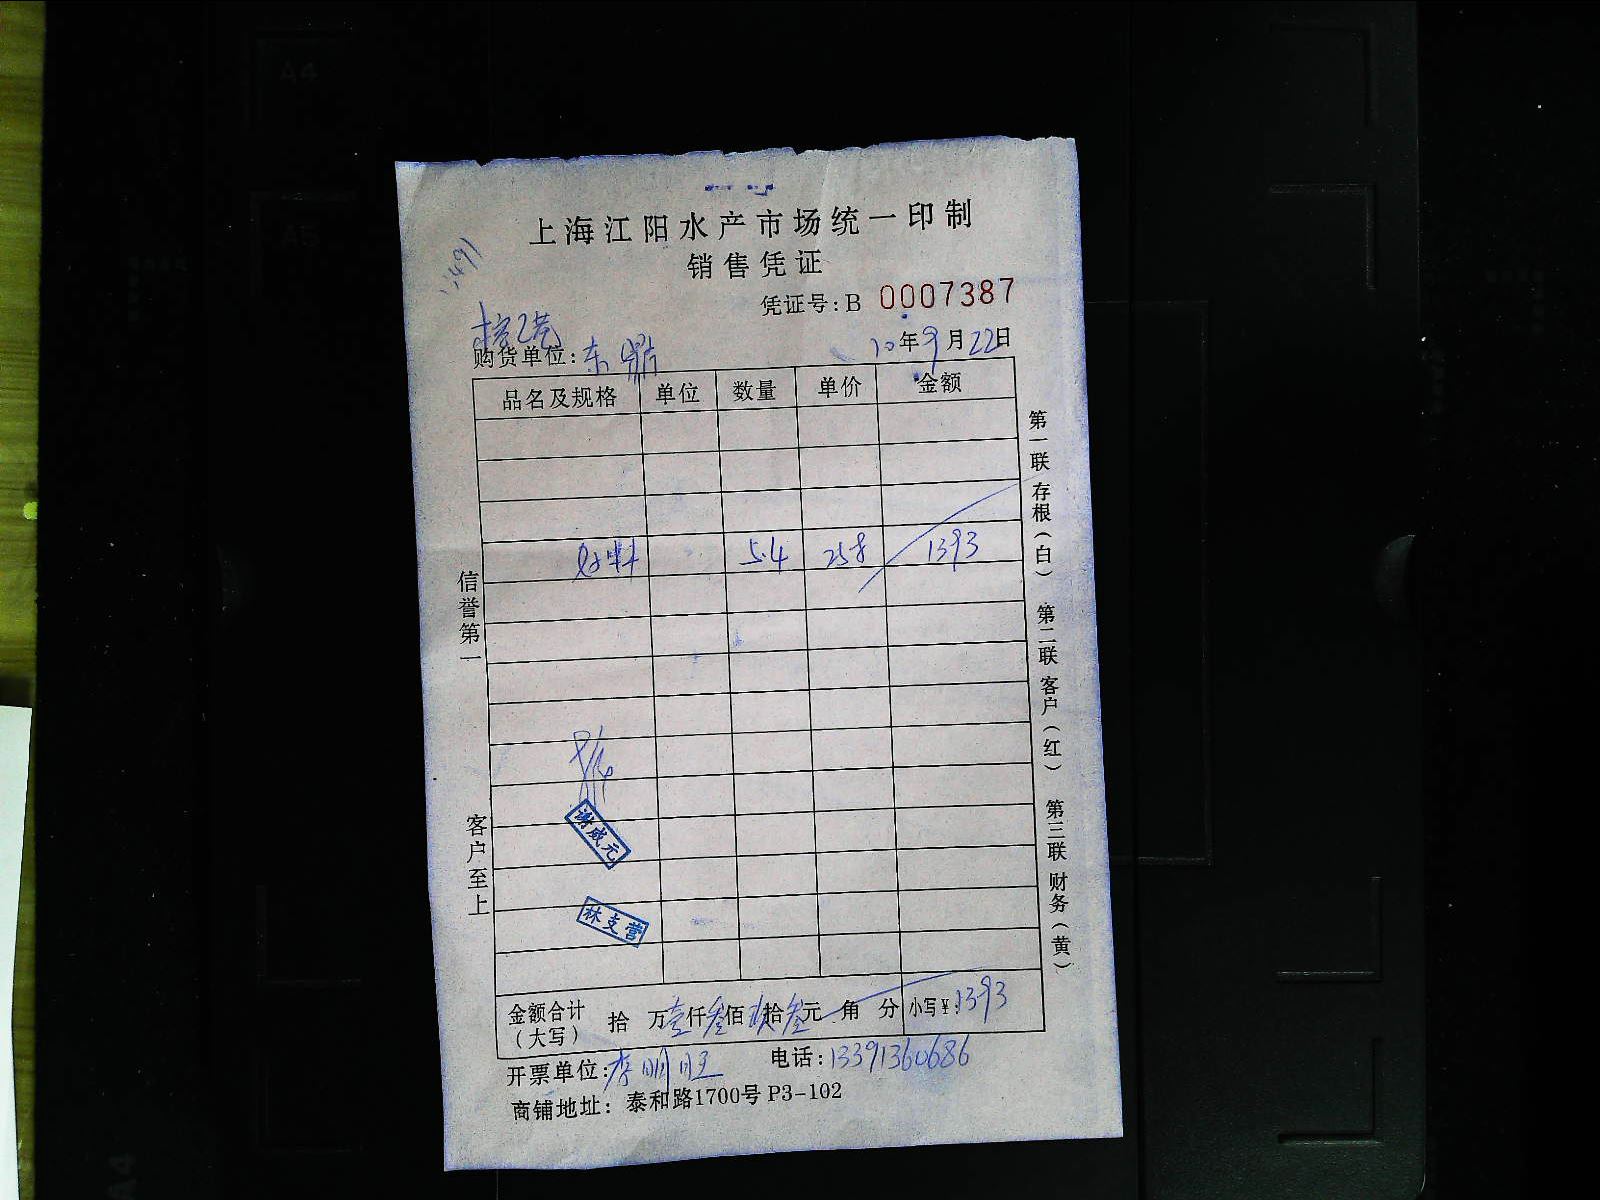 上海江阳水产市场统一印制
销售凭证
凭证号:B 0007387
1491
购货单位: 东鼎
10年9月22日
品名及规格 单位 数量 单价 金额
5.4 258 1393
信誉第一
客户至上
谢威元
林支营
金额合计(大写) 拾 万壹仟叁佰玖拾叁元 角 分 小写¥:1393
开票单位:李明旺 电话:13391360686
商铺地址: 泰和路1700号 P3-102
第一联 存根(白) 第二联 客户(红) 第三联 财务(黄)
A4
A5
A4